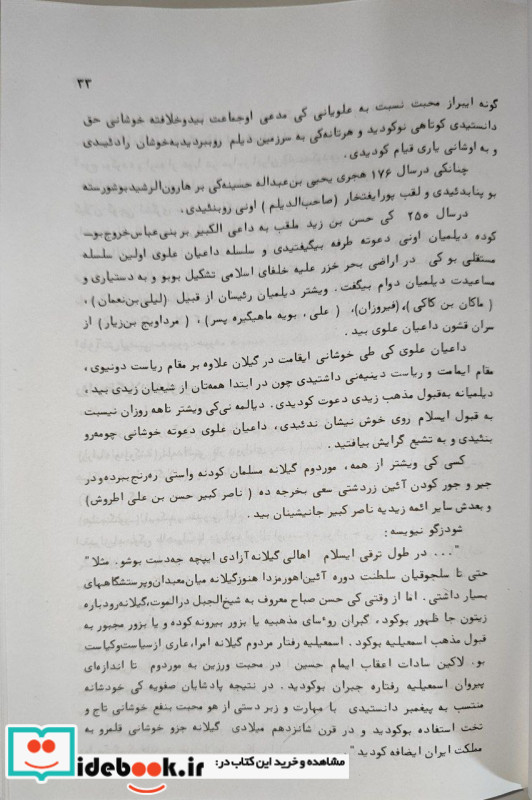 ۳۳
گونه ایبراز محبت نسبت به علویانی کی مدعی اوجماعت بیدوخلافته خوشانی حق
دانستیدی کوتاهی نوکودید و هرتانه‌کی به سرزمین دیلم روببردیدبه‌خوشان رادئیدی
و به اوشانی یاری قیام کودیدی.
چنانکی درسال ۱۷۶ هجری یحیی بن‌عبداله حسینه‌کی بر هارون‌الرشیدبوشورسته
بو پنابدئیدی و لقب پورایفتخار (صاحب‌الدیلم) اونی روبنئیدی.
درسال ۲۵۰ کی حسن بن زید ملقب به داعی الکبیر بر بنی‌عباس‌خروج‌بو-
کوده دیلمیان اونی دعوته طرفه بیگیفتیدی و سلسله داعیان علوی اولین سلسله
مستقلی بو کی در اراضی بحر خزر علیه خلفای اسلامی تشکیل بوبو و به دستیاری و
مساعیدت دیلمیان دوام بیگفت. ویشتر دیلمیان رئیسان از قبیل (لیلی‌بن‌نعمان)،
(ماکان بن کاکی)،(فیروزان)، (علی، بویه ماهیگیره پسر)، (مرداویج بن‌زیار) از
سران قشون داعیان علوی بید.
داعیان علوی کی طی خوشانی ایقامت در گیلان علاوه بر مقام ریاست دونیوی،
مقام ایمامت و ریاست دینیه‌نی داشتیدی چون در ابتدا همه‌تان از شیعیان زیدی بید،
دیلمیانه به‌قبول مذهب زیدی دعوت کودیدی. دیالمه نی‌کی ویشتر تاهه روزان نیسبت
به قبول ایسلام روی خوش نیشان ندئیدی، داعیان علوی دعوته خوشانی چومه‌رو
بنئیدی و به تشیع گرایش بیافتید.
کسی کی ویشتر از همه، موردوم گیلانه مسلمان کودنه واستی ره‌رنج‌ببرده‌و در
جیر و جور کودن آئین زردشتی سعی بخرجه ده (ناصر کبیر حسن بن علی اطروش)
و بعدش سایر ائمه زیدیه ناصر کبیر جانیشینان بید.
شودزگو نیویسه:
"... در طول ترقی ایسلام اهالی گیلانه‌آزادی ایپچه جه‌دست بوشو. مثلا"
حتی تا سلجوقیان سلطنت دوره آئین‌اهورمزدا هنوزگیلانه میان‌معبدان‌وپرستشگاههای
بسیار داشتی. اما از وقتی کی حسن صباح معروف به شیخ‌الجبل درالموت،گیلانه‌رودباره
زیتون جا ظهور بوکود، گبران روءسای مذهبیه یا بزور بیرونه کوده و یا بزور مجبور به
قبول مذهب اسمعیلیه بوکود. اسمعیلیه رفتار مردوم گیلانه امرا،عاری ازسیاست‌وکیاست
بو. لاکین سادات اعقاب ایمام حسین در محبت ورزین به موردوم تا اندازه‌ای
پیروان اسمعیلیه رفتاره جبران بوکودید. در نتیجه پادشایان صفویه کی خودشانه
منتسب به پیغمبر دانستیدی با مهارت و زبر دستی از هو محبت بنفع خوشانی تاج و
تخت استفاده بوکودید و در قرن شانزدهم میلادی گیلانه جزو خوشانی قلمرو به
مملکت ایران ایضافه کودید"
مشاهده و خرید این کتاب در:
idebook.ir